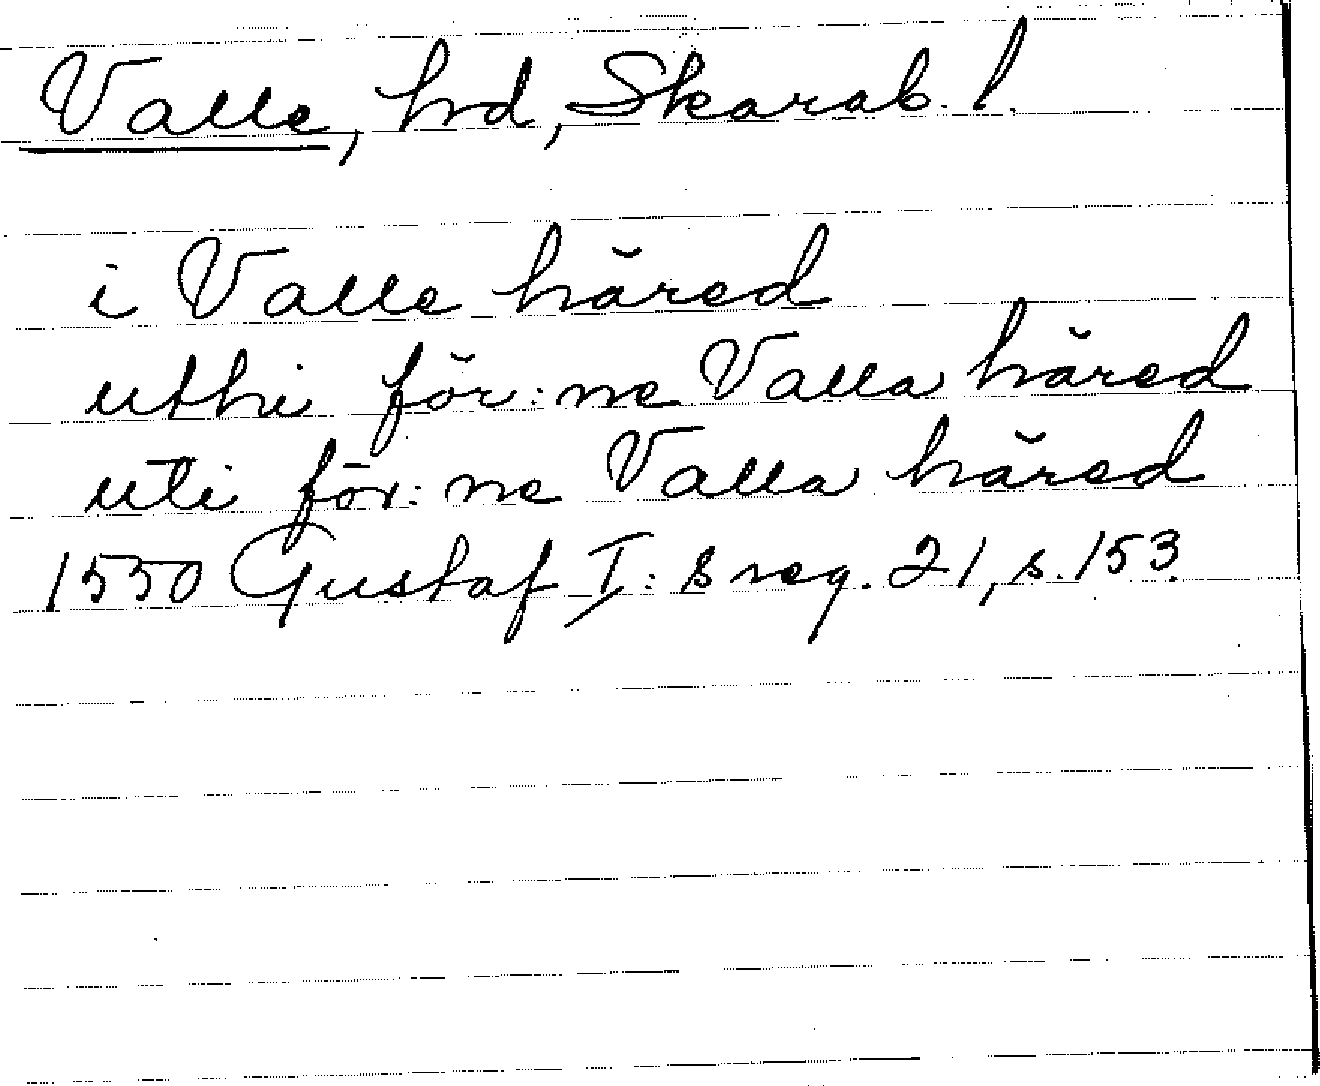 Valle, hd, Skarab. l.
i Valle häred
uthi för:ne Valla häred
uti för:ne Valla häred
1550 Gustaf I:s reg. 21, s. 153.